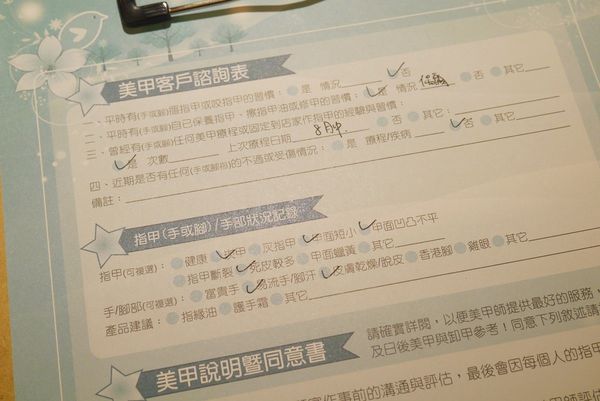 美甲客戶諮詢表
一、平時有(手或腳)摳指甲或咬指甲的習慣：是 情況 否
二、平時有(手或腳)自己保養指甲、擦指甲油或修甲的習慣：是 情況 否 其它
三、曾經有(手或腳)任何美甲療程或固定到店家作指甲的經驗與習慣：
是 次數 上次療程日期 8月中 否 其它
四、近期是否有任何(手或腳指)的不適或受傷情況：是 療程/疾病 否 其它
備註：
指甲(手或腳)/手部狀況記錄
指甲(可複選)：健康 薄甲 灰指甲 甲面短小 甲面凹凸不平
指甲斷裂 死皮較多 甲面蠟黃 其它
手/腳部(可複選)：富貴手 易流手/腳汗 皮膚乾燥/脫皮 香港腳 雞眼 其它
產品建議：指緣油 護手霜 其它
美甲說明暨同意書
請確實詳閱，以便美甲師提供最好的服務，
及日後美甲與卸甲參考！同意下列敘述請
作事前的溝通與評估，最後會因每個人的指甲